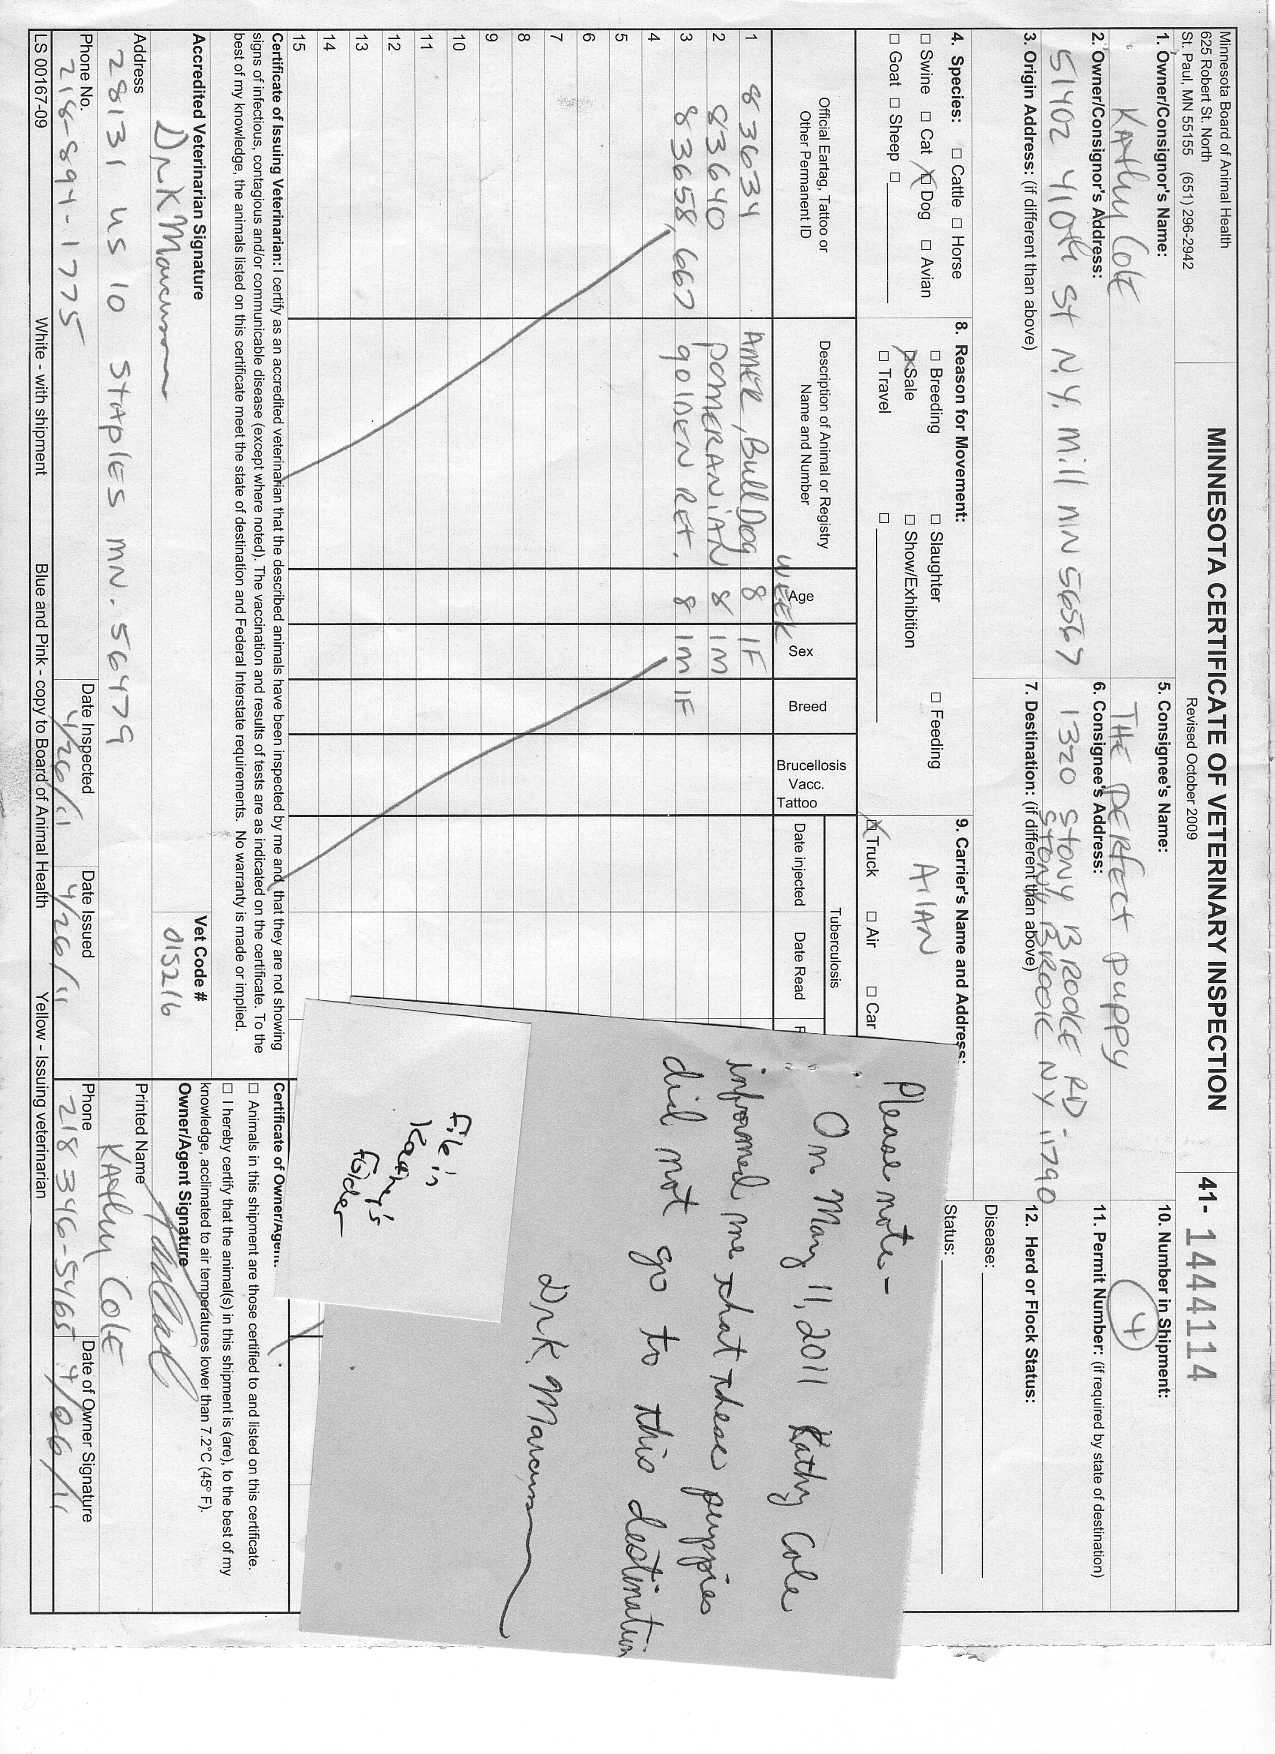 Minnesota Board of Animal Health
625 Robert St. North
St. Paul, MN 55155 (651) 296-2942
MINNESOTA CERTIFICATE OF VETERINARY INSPECTION
Revised October 2009
41- 1444114
1. Owner/Consignor's Name:
KAthy ColE
2. Owner/Consignor's Address:
51402 410th St N.Y. Mill MN 56567
3. Origin Address: (if different than above)
5. Consignee's Name:
THE PERfect puppy
6. Consignee's Address:
1320 STONY BROOKE RD-
STONY BROOK NY 11790
7. Destination: (if different than above)
10. Number in Shipment:
4
11. Permit Number: (if required by state of destination)
12. Herd or Flock Status:
Disease:
Status:
4. Species: □ Cattle □ Horse
□ Swine □ Cat ☒ Dog □ Avian
□ Goat □ Sheep □
8. Reason for Movement:
□ Breeding □ Slaughter □ Feeding
☒ Sale □ Show/Exhibition
□ Travel □
9. Carrier's Name and Address:
AllAN
☒ Truck □ Air □ Car
Official Eartag, Tattoo or
Other Permanent ID
Description of Animal or Registry
Name and Number
Age
WEEK
Sex
Breed
Brucellosis
Vacc.
Tattoo
Tuberculosis
Date injected
Date Read
1 83634 AMER, Bull Dog 8 1F
2 83640 POMERANiAN 8 1M
3 83658, 667 golDEN RET. 8 1M 1F
4
5
6
7
8
9
10
11
12
13
14
15
Please note-
On May 11, 2011 Kathy Cole
informed me that these puppies
did not go to this destination
Dr K. Marcusson
File in
folder
Certificate of Issuing Veterinarian: I certify as an accredited veterinarian that the described animals have been inspected by me and that they are not showing
signs of infectious, contagious and/or communicable disease (except where noted). The vaccination and results of tests are as indicated on the certificate. To the
best of my knowledge, the animals listed on this certificate meet the state of destination and Federal Interstate requirements. No warranty is made or implied.
Accredited Veterinarian Signature
Dr K Marcusson
Vet Code #
015216
Address
28131 US 10 STAPlES MN. 56479
Phone No.
218-894-1775
Date Inspected
4/26/11
Date Issued
4/26/11
Certificate of Owner/Agent
□ Animals in this shipment are those certified to and listed on this certificate.
□ I hereby certify that the animal(s) in this shipment is (are), to the best of my
knowledge, acclimated to air temperatures lower than 7.2°C (45° F).
Owner/Agent Signature
Printed Name
KAthy ColE
Phone
218 346-5465
Date of Owner Signature
4/26/11
LS 00167-09
White - with shipment
Blue and Pink - copy to Board of Animal Health
Yellow - Issuing veterinarian